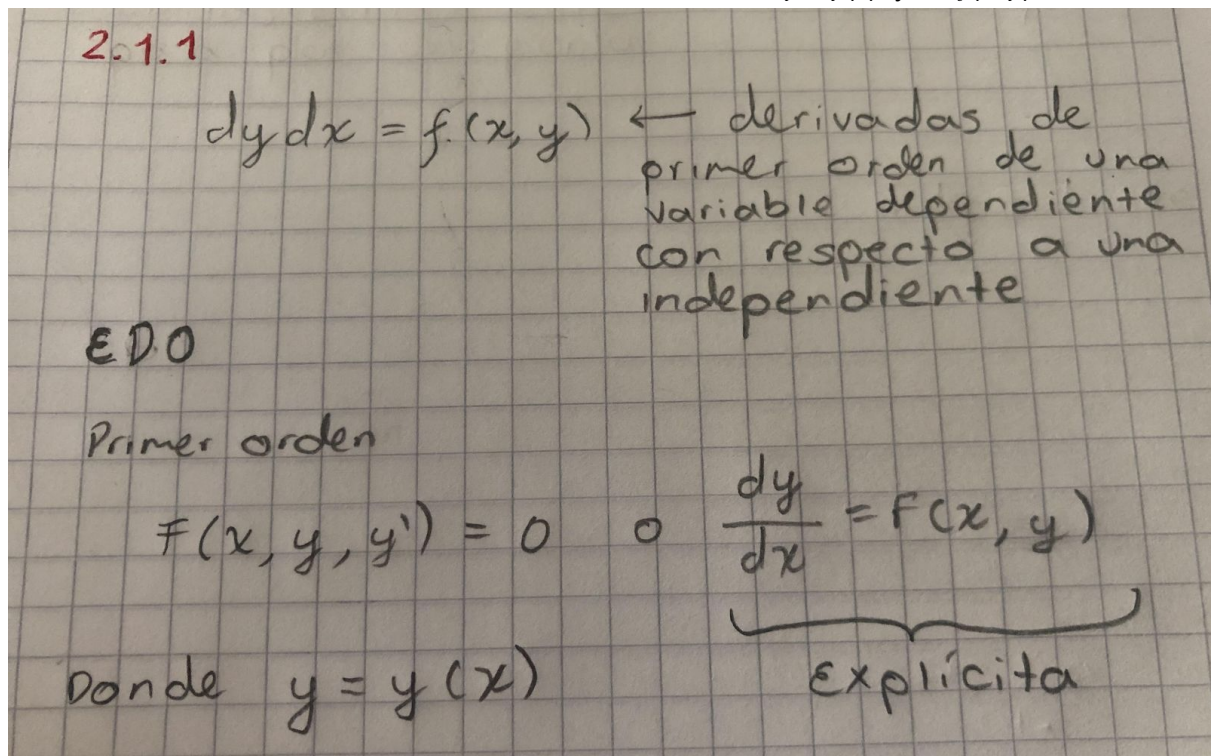 2.1.1
dy dx = f(x, y) ← derivadas de
primer orden de una
variable dependiente
con respecto a una
independiente
EDO
Primer orden
F(x, y, y') = 0 o dy/dx = f(x, y)
Donde y = y(x) Explícita